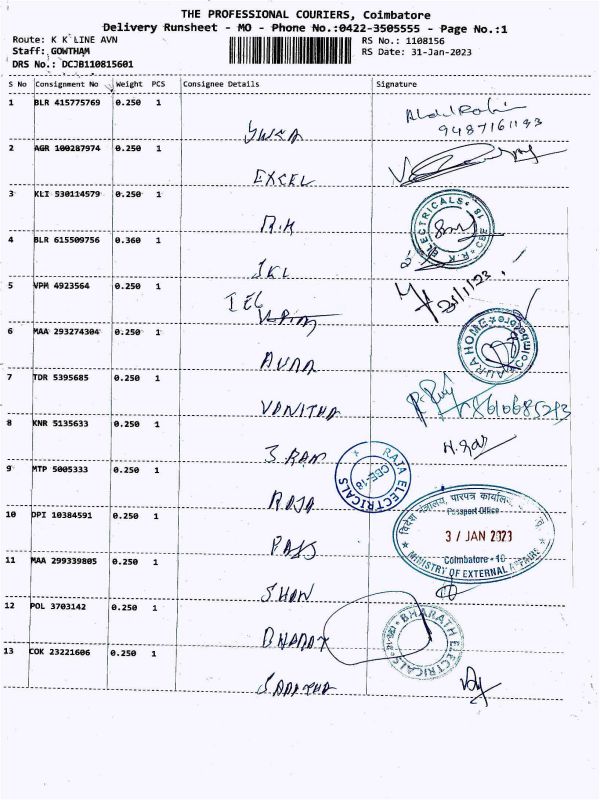 THE PROFESSIONAL COURIERS, Coimbatore
Delivery Runsheet - MO - Phone No.:0422-3505555 - Page No.:1
Route: K K LINE AVN
RS No.: 1108156
Staff: GOWTHAM
RS Date: 31-Jan-2023
DRS No.: DCJB110815601
S No Consignment No Weight PCS Consignee Details Signature
1 BLR 415775769 0.250 1
9487161193
2 AGR 100287974 0.250 1
EXCEL
3 KLI 530114579 0.250 1
R.K
R.K ELECTRICALS
4 BLR 615509756 0.360 1
JKL
5 VPM 4923564 0.250 1
31/1/23
IEC
6 MAA 293274304 0.250 1
AURA HOME Coimbatore
AURA
7 TDR 5395685 0.250 1
VANITHA
8 KNR 5135633 0.250 1
SRAM
9 MTP 5005333 0.250 1
RAJA ELECTRICALS CBE-18
RAJA
10 DPI 10384591 0.250 1
विदेश मंत्रालय, पारपत्र कार्यालय
Passport Office
3 / JAN 2023
Coimbatore - 10
MINISTRY OF EXTERNAL AFFAIRS
PASS
11 MAA 299339805 0.250 1
SHAN
12 POL 3703142 0.250 1
BHARATH ELECTRICALS
BHARAT
13 COK 23221606 0.250 1